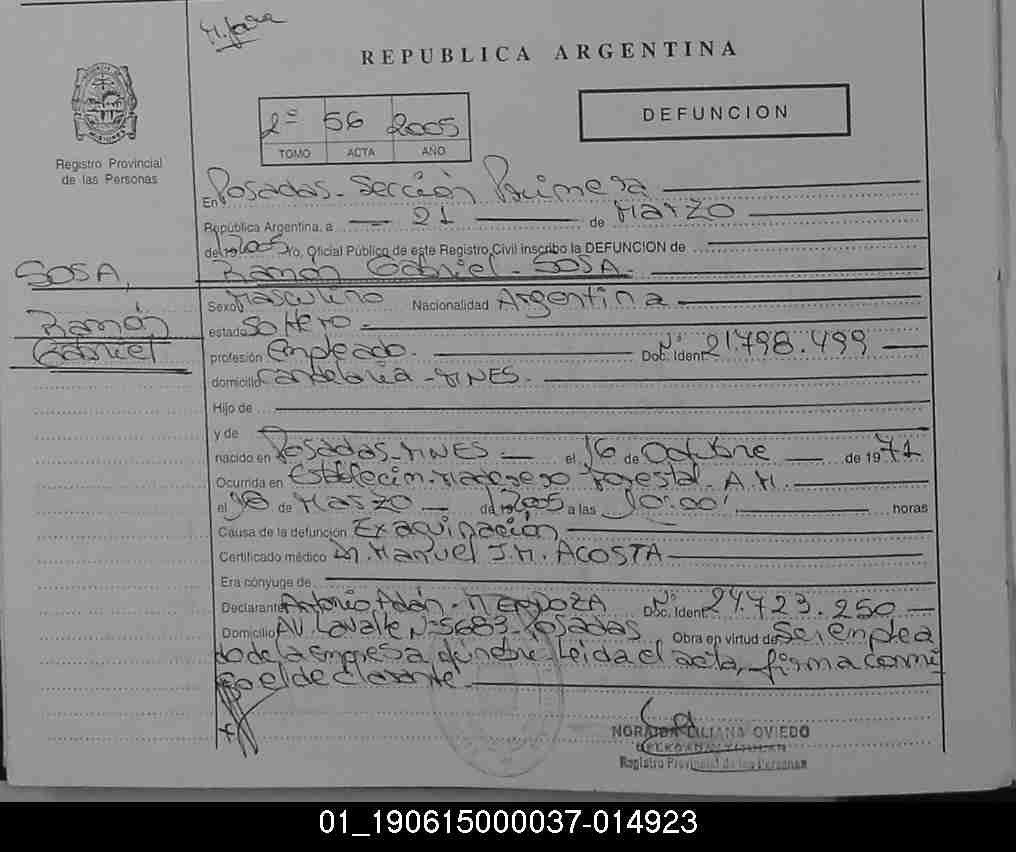 REPUBLICA ARGENTINA
DEFUNCION
2º 56 2005
TOMO ACTA AÑO
Registro Provincial
de las Personas
En Posadas - Sección Primera
República Argentina, a 21 de Marzo
de 2005 Yo, Oficial Público de este Registro Civil inscribo la DEFUNCION de
SOSA, Ramón Gabriel - SOSA
Ramón
Gabriel
Sexo Masculino Nacionalidad Argentina
estado Soltero
profesión Empleado. Doc. Ident. Nº 21798.499
domicilio Candelaria - MNES.
Hijo de
y de
nacido en Posadas - MNES el 16 de Octubre de 1971
Ocurrida en Establecim. Forestal. A.M.
el 18 de Marzo de 2005 a las 10:00 horas
Causa de la defunción
Certificado médico Manuel J.M. ACOSTA
Era cónyuge de
Declarante Antonio Adán - MENDOZA Doc. Ident. Nº 24.723.250
Domicilio AV Lavalle Nº 5683 Posadas Obra en virtud de Ser emplea
do de la empresa fúnebre Leida el acta, firma conmi
go el declarante
NORAIDA LILIANA OVIEDO
Registro Provincial de las Personas
01_190615000037-014923